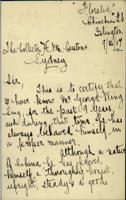 "Florella"
Churchill St
Islington
The Collector H. M. Customs
Sydney
Sir,
This is to certify that
I have known Mr George Wing
Sing, for the past 2 years
and during that time he has
always behaved himself in
a proper manner.
Although a native
of China, he has proved
himself a thoroughly honest,
upright, steady & good